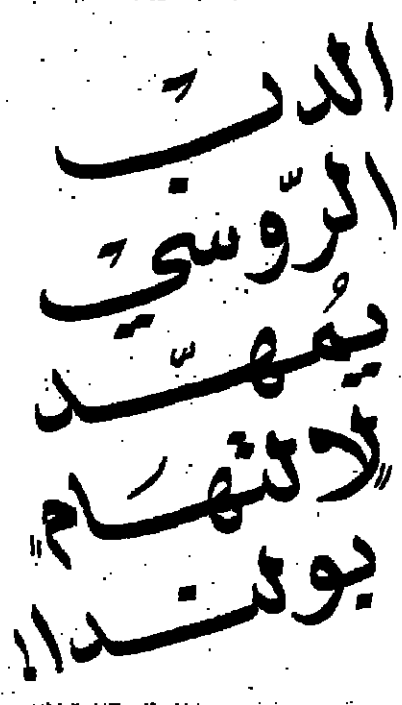 الدبّ
الرّوسيّ
يُمهّد
«لالتهَام»
بولندا!